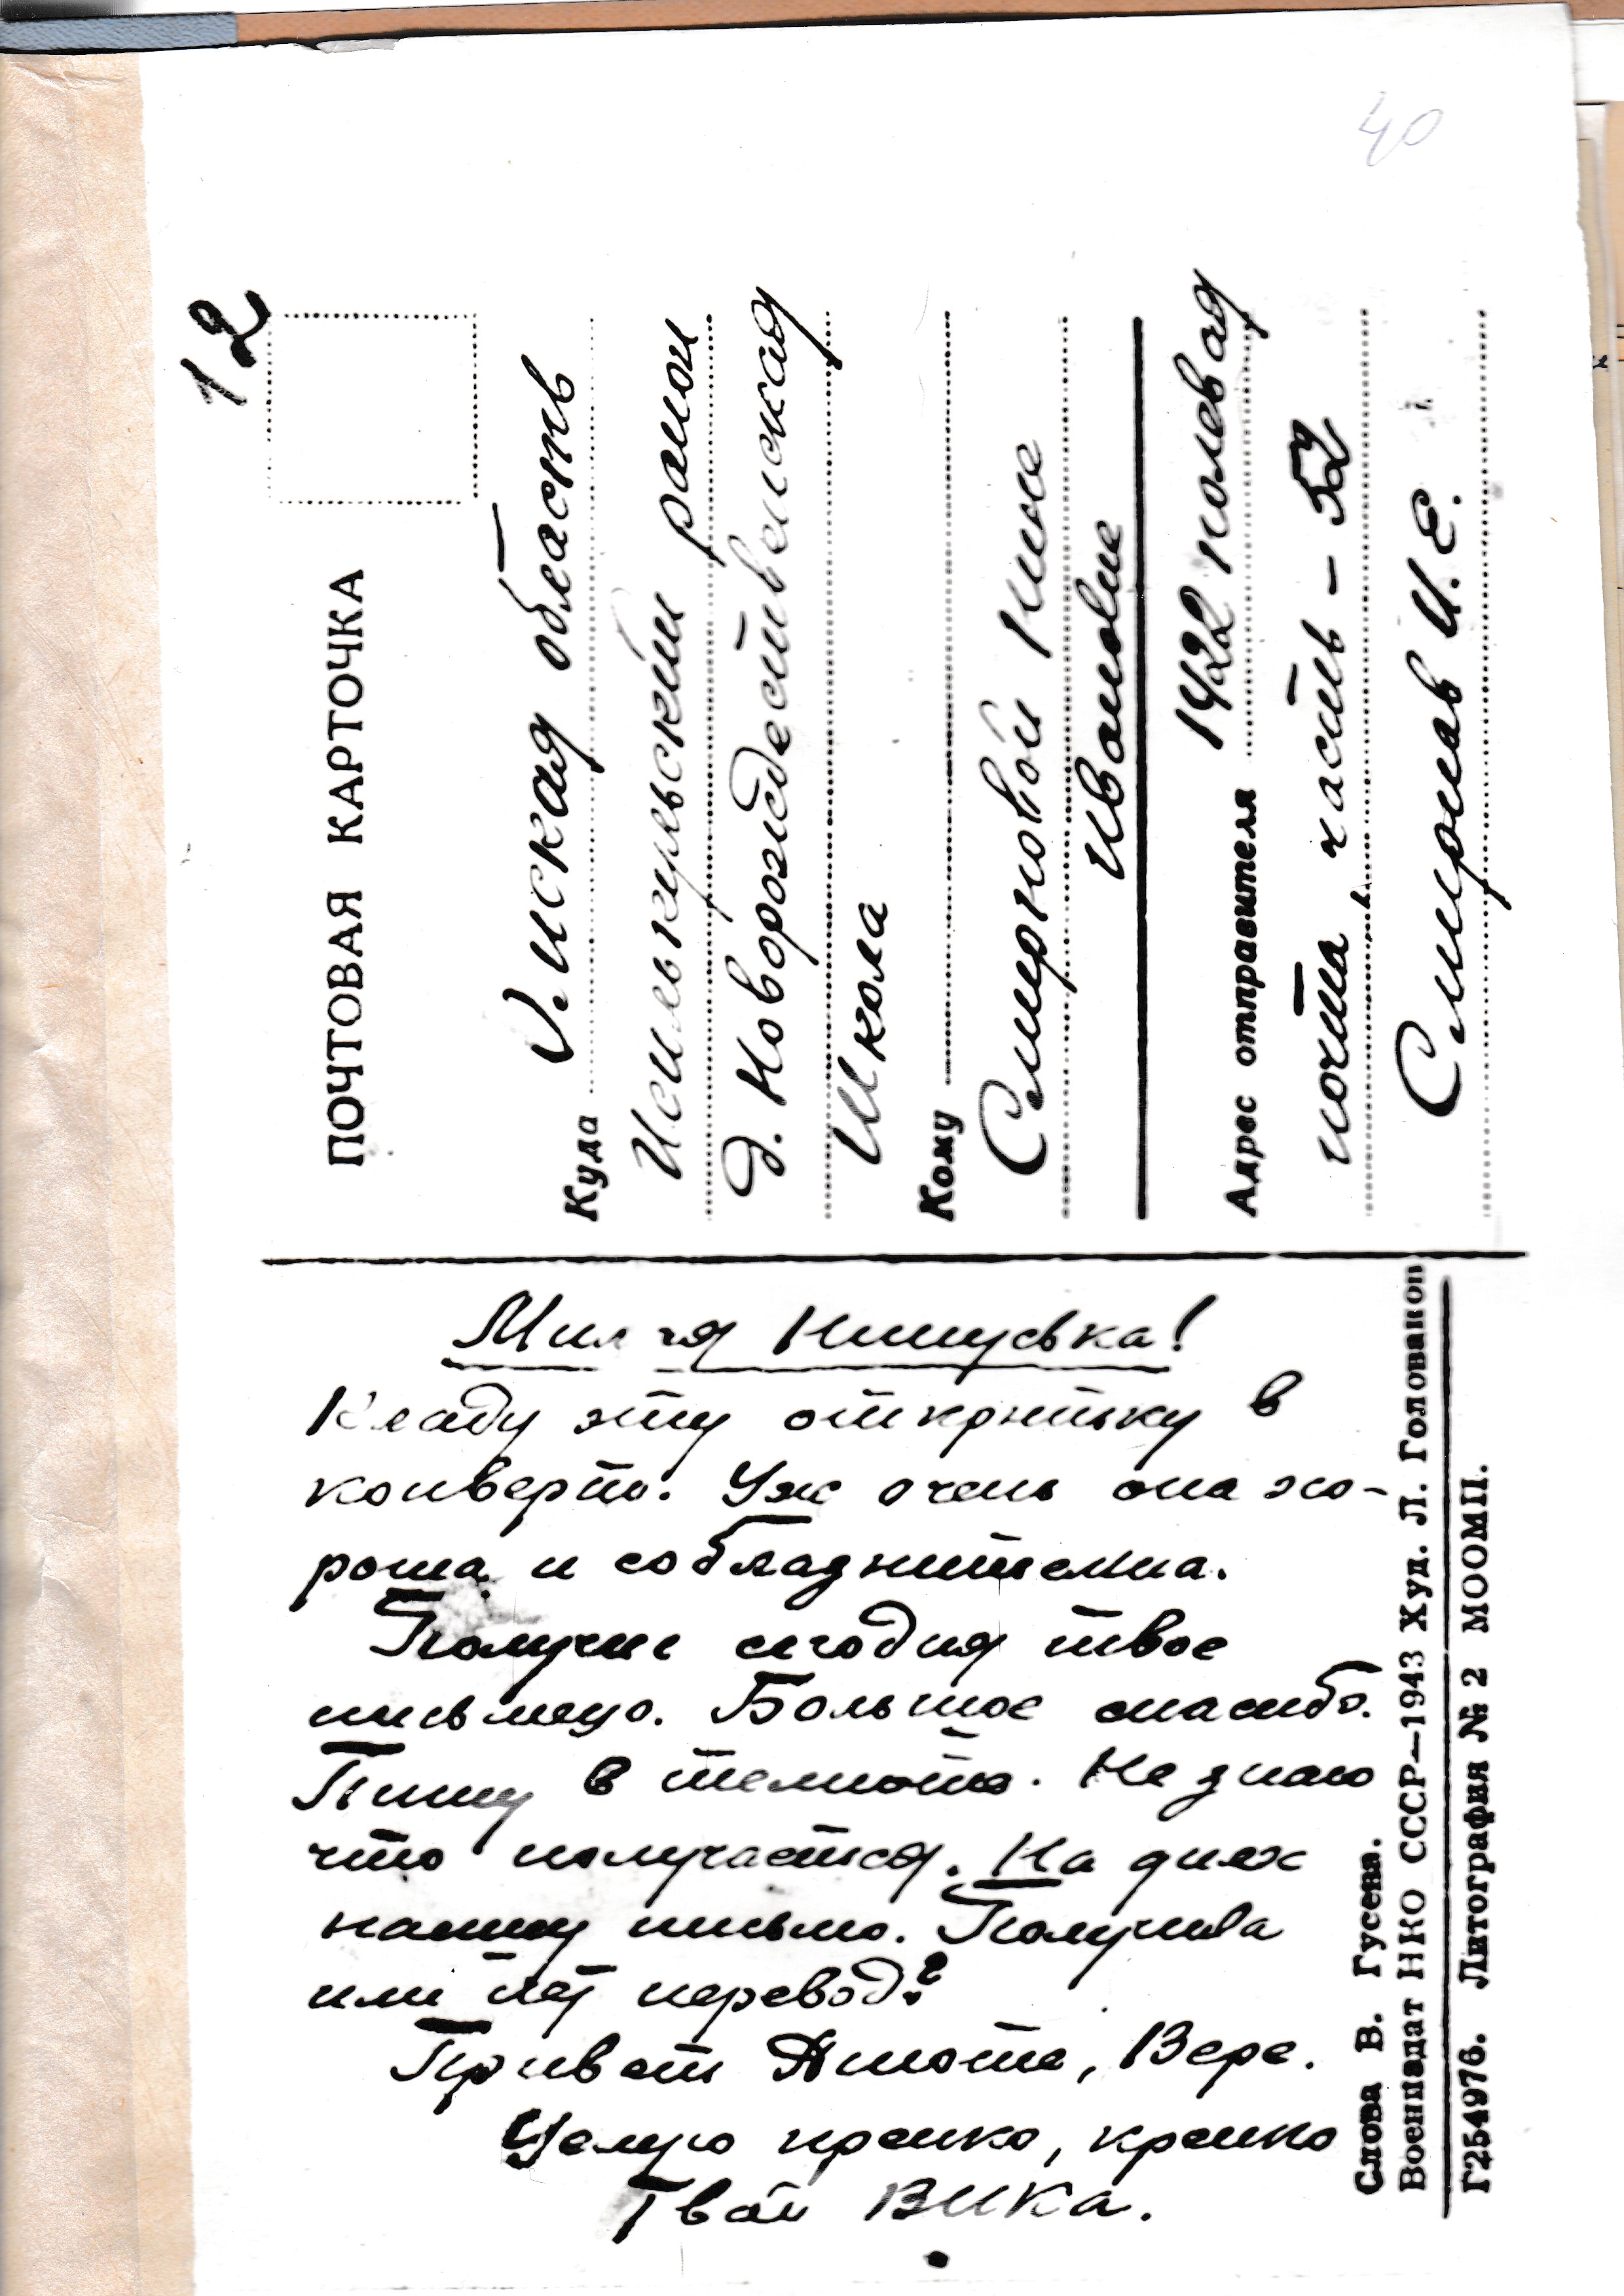 40
12
ПОЧТОВАЯ КАРТОЧКА
Куда Омская область
Исилькульский район
д. Новорождественская
Школа
Кому
Смирновой Нине
Ивановне
Адрес отправителя 1422 полевая
почта, часть – 52
Смирнов И. Е.
Милая Нинуська!
Кладу эту открытку в
конверт. Уж очень она хо-
роша и соблазнительна.
Получил сегодня твое
письмецо. Большое спасибо.
Пишу в темноте. Не знаю
что получается. На днях
напишу письмо. Получила
или нет перевод?
Привет Анюте, Вере.
Целую крепко, крепко
Твой ВИКА.
Слова В. Гусева.
Воениздат НКО СССР—1943 Худ. Л. Голованов
Г254976. Литография № 2 МООМП.